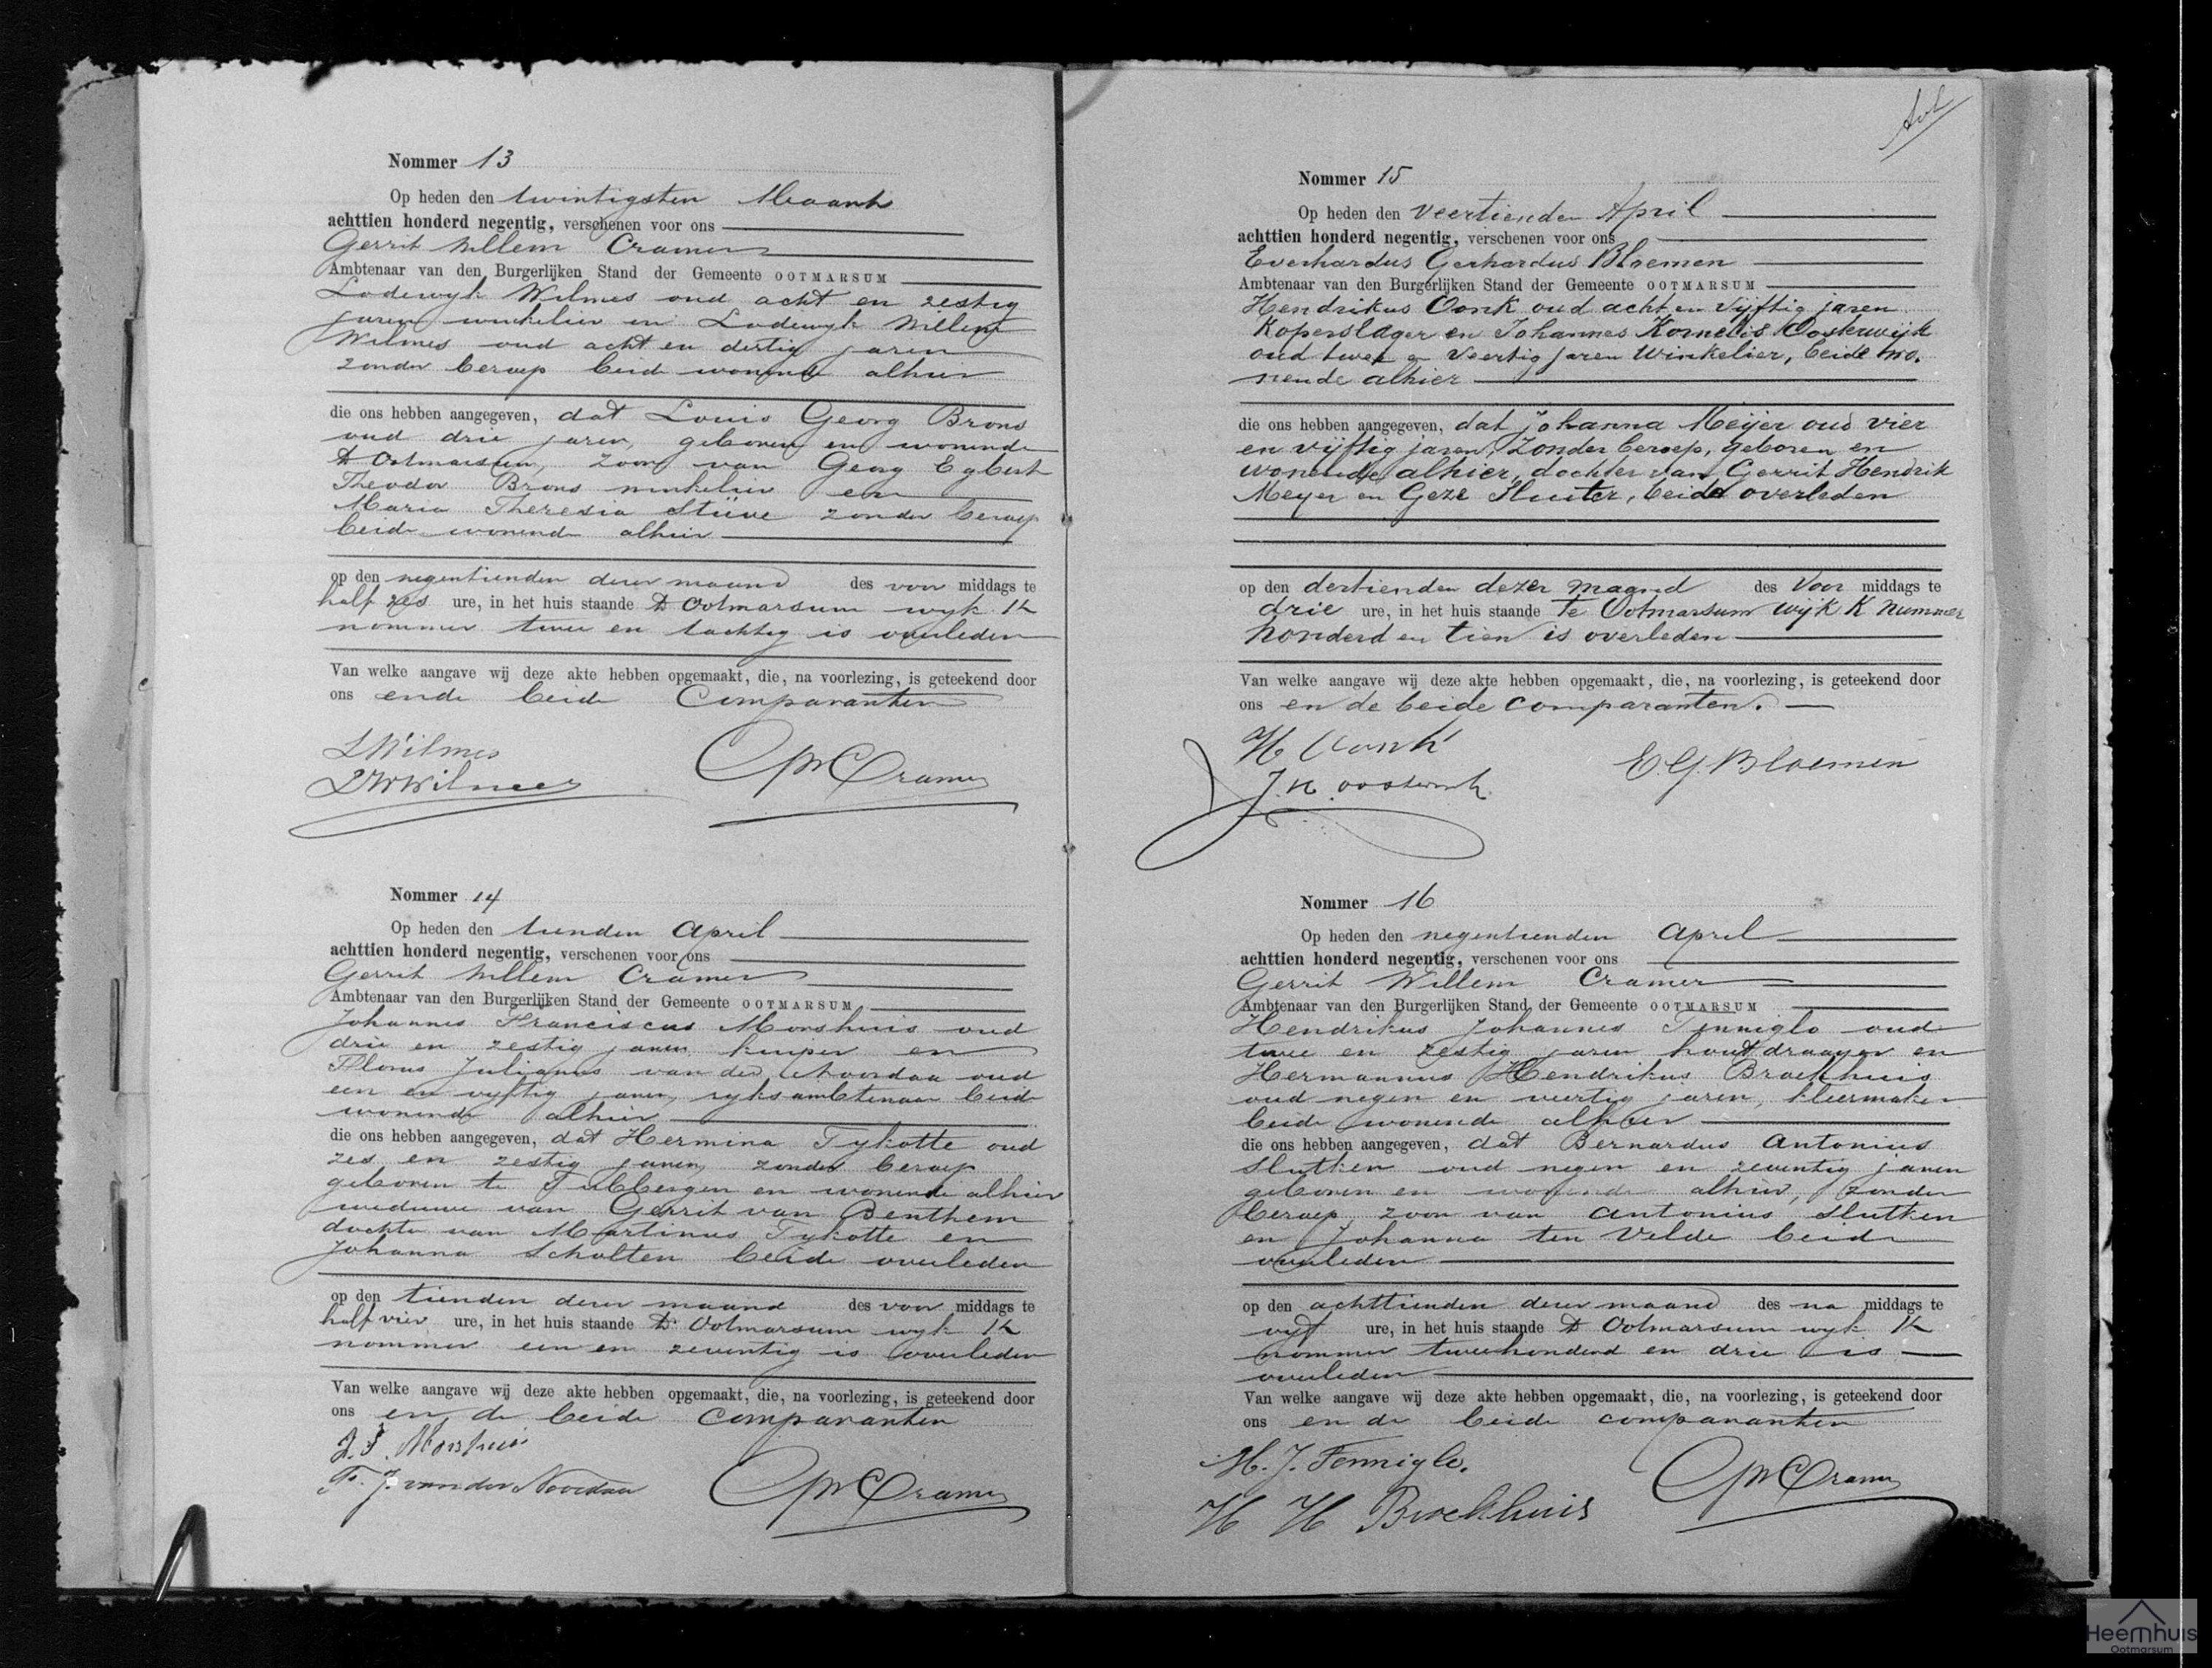 Nommer 13
Op heden den twintigsten Maart
achttien honderd negentig, verschenen voor ons
Gerrit Willem Cramer
Ambtenaar van den Burgerlijken Stand der Gemeente OOTMARSUM
Lodewyk Wilmes oud acht en zestig
jaren winkelier en Lodewyk Willem
Wilmes oud acht en dertig jaren
zonder beroep beide wonende alhier
die ons hebben aangegeven, dat Louis Georg Brons
oud drie jaren, geboren en wonende
te Ootmarsum, zoon van Georg Egbert
Theodor Brons winkelier en
Maria Theresia Stüve zonder beroep
beide wonende alhier
op den negentienden dezer maand des voor middags te
half zes ure, in het huis staande te Ootmarsum wyk K
nommer twee en tachtig is overleden
Van welke aangave wij deze akte hebben opgemaakt, die, na voorlezing, is geteekend door
ons ende beide Comparanten
L Wilmes
L W Wilmes
GW Cramer
Nommer 14
Op heden den tienden April
achttien honderd negentig, verschenen voor ons
Gerrit Willem Cramer
Ambtenaar van den Burgerlijken Stand der Gemeente OOTMARSUM
Johannes Franciscus Morshuis oud
drie en zestig jaren kuiper en
Florus Julianus van der Noordaa oud
een en vyftig jaren, ryksambtenaar beide
wonende alhier
die ons hebben aangegeven, dat Hermina Tykotte oud
zes en zestig jaren, zonder beroep
geboren te Tubbergen en wonende alhier
weduwe van Gerrit van Benthem
dochter van Martinus Tykotte en
Johanna Scholten beide overleden
op den tienden dezer maand des voor middags te
half vier ure, in het huis staande te Ootmarsum wyk K
nommer een en zeventig is overleden
Van welke aangave wij deze akte hebben opgemaakt, die, na voorlezing, is geteekend door
ons en de beide comparanten
J. F. Morshuis
F. J. van der Noordaa
GW Cramer
Nommer 15
Op heden den veertienden April
achttien honderd negentig, verschenen voor ons
Everhardus Gerhardus Bloemen
Ambtenaar van den Burgerlijken Stand der Gemeente OOTMARSUM
Hendrikus Oonk oud acht en vijftig jaren
Koperslager en Johannes Kornelis Oosterwijk
oud twee en veertig jaren Winkelier, beide wo.
nende alhier
die ons hebben aangegeven, dat Johanna Meijer oud vier
en vijftig jaren, zonder beroep, geboren en
wonende alhier, dochter van Gerrit Hendrik
Meyer en Geze Sluiter, beide overleden
op den dertienden dezer maand des Voor middags te
drie ure, in het huis staande te Ootmarsum Wijk K Nummer
honderd en tien is overleden
Van welke aangave wij deze akte hebben opgemaakt, die, na voorlezing, is geteekend door
ons en de beide comparanten.
H Oonk
J. K. oosterwijk
E. G. Bloemen
Nommer 16
Op heden den negentienden April
achttien honderd negentig, verschenen voor ons
Gerrit Willem Cramer
Ambtenaar van den Burgerlijken Stand der Gemeente OOTMARSUM
Hendrikus Johannes Tenniglo oud
twee en zestig jaren houtdraayer en
Hermannus Hendrikus Broekhuis
oud negen en veertig jaren, kleermaker
beide wonende alhier
die ons hebben aangegeven, dat Bernardus Antonius
Slutken oud negen en zeventig jaren
geboren en wonende alhier, zonder
beroep, zoon van Antonius Slutken
en Johanna ten Velde beide
overleden
op den achttienden dezer maand des na middags te
vyf ure, in het huis staande te Ootmarsum wyk K
nommer tweehonderd en drie is
overleden
Van welke aangave wij deze akte hebben opgemaakt, die, na voorlezing, is geteekend door
ons en de beide comparanten
H. J. Tennigle.
H H Broekhuis
GW Cramer
Heemhuis
Ootmarsum